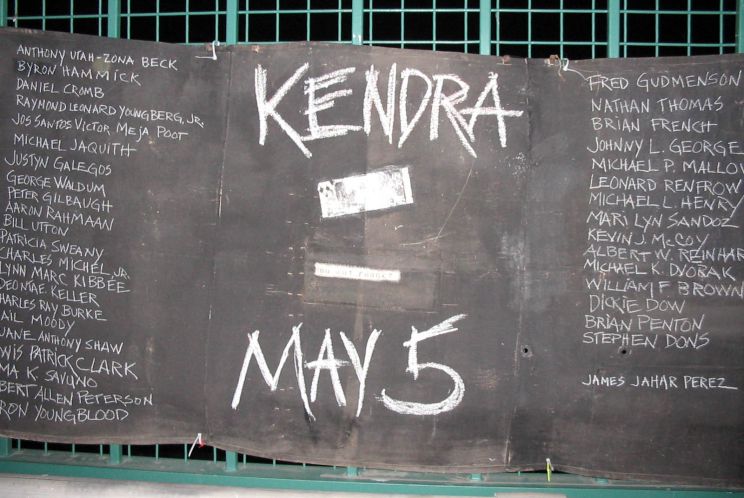 ANTHONY UTAH-ZONA BECK
BYRON HAMMICK
DANIEL CROMB
RAYMOND LEONARD YOUNGBERG, JR.
JOS SANTOS VICTOR MEJA POOT
MICHAEL JAQUITH
JUSTYN GALEGOS
GEORGE WALDUM
PETER GILBAUGH
AARON RAHMAAN
BILL UTTON
PATRICIA SWEANY
CHARLES MICHEL, JR.
LYNN MARC KIBBEE
DEONTAE. KELLER
HARLES RAY BURKE
AIL MOODY
JANE ANTHONY SHAW
WIS PATRICK CLARK
MA K SAVUNO
BERT ALLEN PETERSON
RON YOUNGBLOOD
KENDRA
MAY 5
FRED GUDMENSON
NATHAN THOMAS
BRIAN FRENCH
JOHNNY L. GEORGE
MICHAEL P. MALLOW
LEONARD RENFROW
MICHAEL L. HENRY
MARI LYN SANDOZ
KEVIN J. MCCOY
ALBERT W. REINHAR
MICHAEL K. DVORAK
WILLIAM F BROWN
DICKIE DOW
BRIAN PENTON
STEPHEN DONS
JAMES JAHAR PEREZ